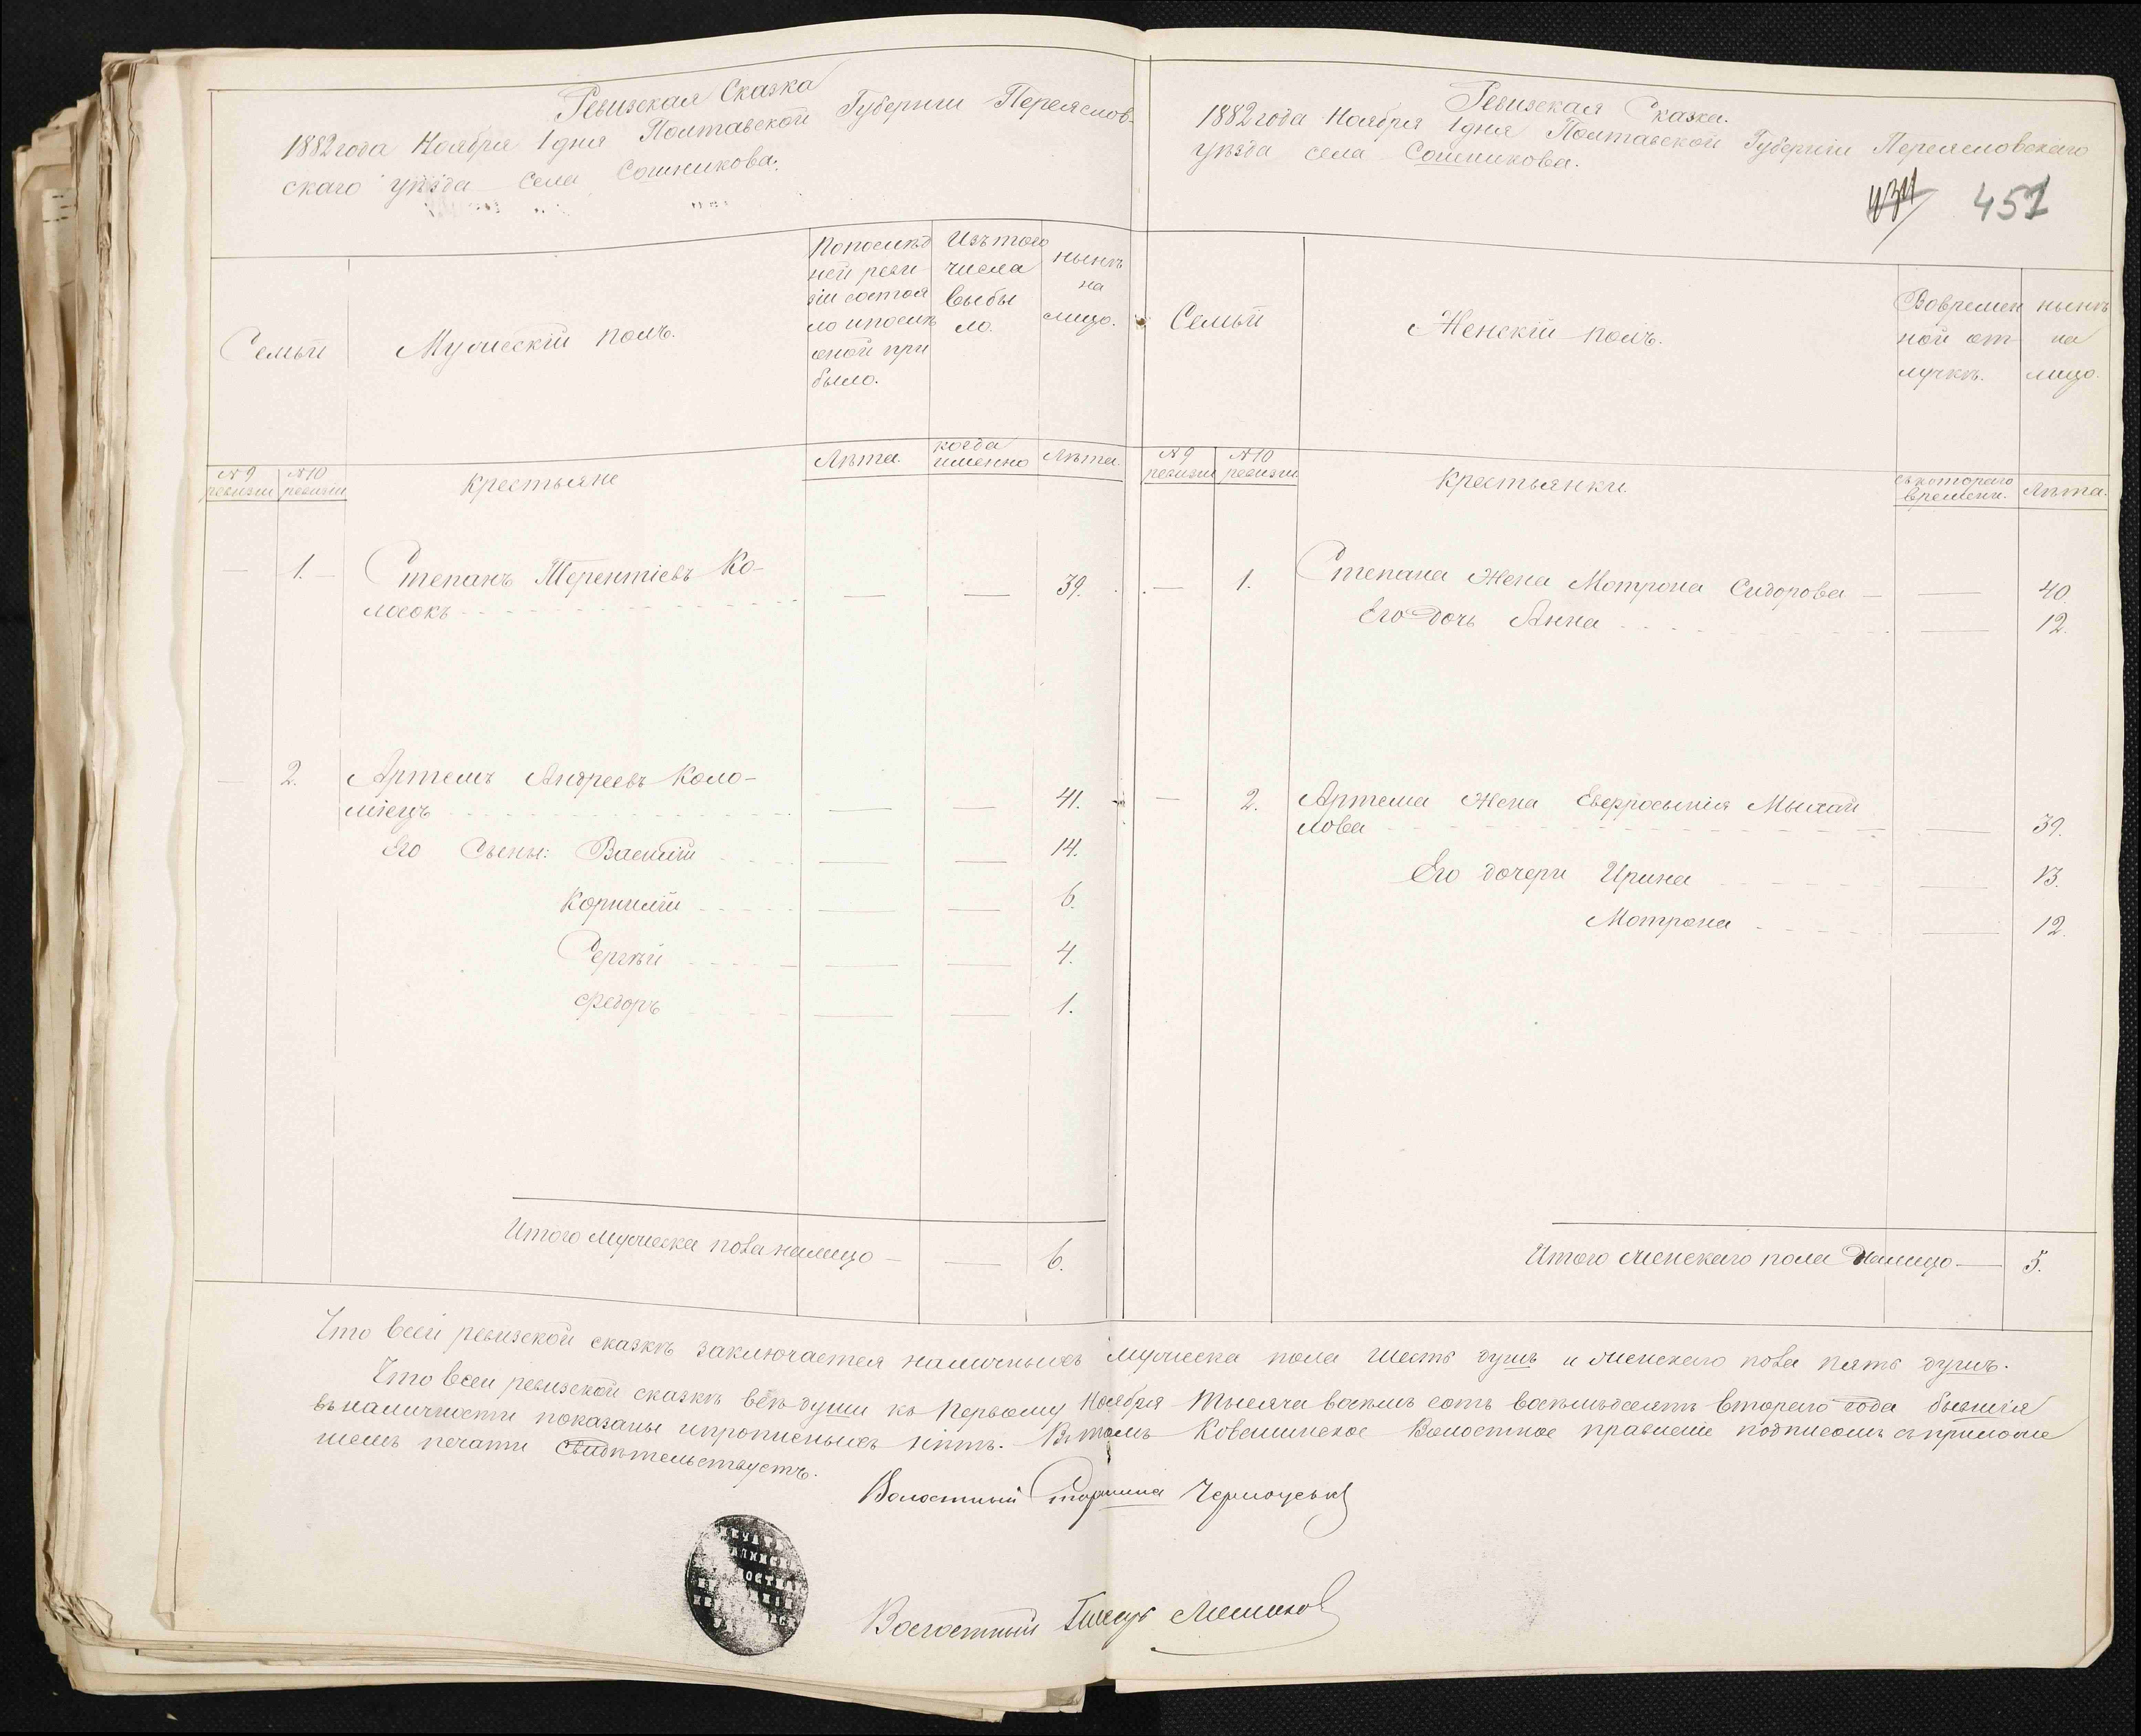 Ревизская Сказка
1882 года Ноября 1 дня Полтавской Губернии Переяслов-
скаго уѣзда села Сошникова.
Семьи
Мужескій полъ.
По послѣд
ней реви
зіи состоя
ло и послѣ
оной при
было.
Изъ того
числа
выбы
ло.
нынѣ
на
лицо.
№ 9
ревизіи
№ 10
ревизіи
Крестьяне
Лѣта.
когда
именно
Лѣта.
1.
Степанъ Терентіевъ Ко-
лосокъ
39.
2.
Артемъ Андреевъ Коло-
міецъ
41.
Его Сыны: Василій
14.
Корнилій
6.
Сергѣй
4.
Федоръ
1.
Итого мужеска пола налицо
6.
Ревизская Сказка.
1882 года Ноября 1 дня Полтавской Губерніи Переясловскаго
уѣзда села Сошникова.
434 451
Семьи
Женскій полъ.
Во времен
ной от
лучкѣ.
нынѣ
на
лицо.
№ 9
ревизіи
№ 10
ревизіи
Крестьянки.
съ котораго
времени.
Лѣта.
1.
Степана Жена Мотрона Сидорова
40.
Его дочь Анна
12.
2.
Артема Жена Евфросынія Мыхай
лова
39.
Его дочери Ирина
13.
Мотрона
12.
Итого женскаго пола Налицо
5.
Что всей ревизской сказкѣ заключается наличныхъ мужеска пола шесть душъ и женскаго пола пять душъ.
Что всеи ревизской сказкѣ всѣ души къ Первому Ноября тысяча восемь сотъ восемьдесятъ второго года бывшія
въ наличности показаны и прописныхъ нѣтъ. Въ томъ Ковалинское Волостное правленіе подписомъ съ приложе
ніемъ печати свидѣтельствуетъ.
Волостный Старшина
Волостный Писарь